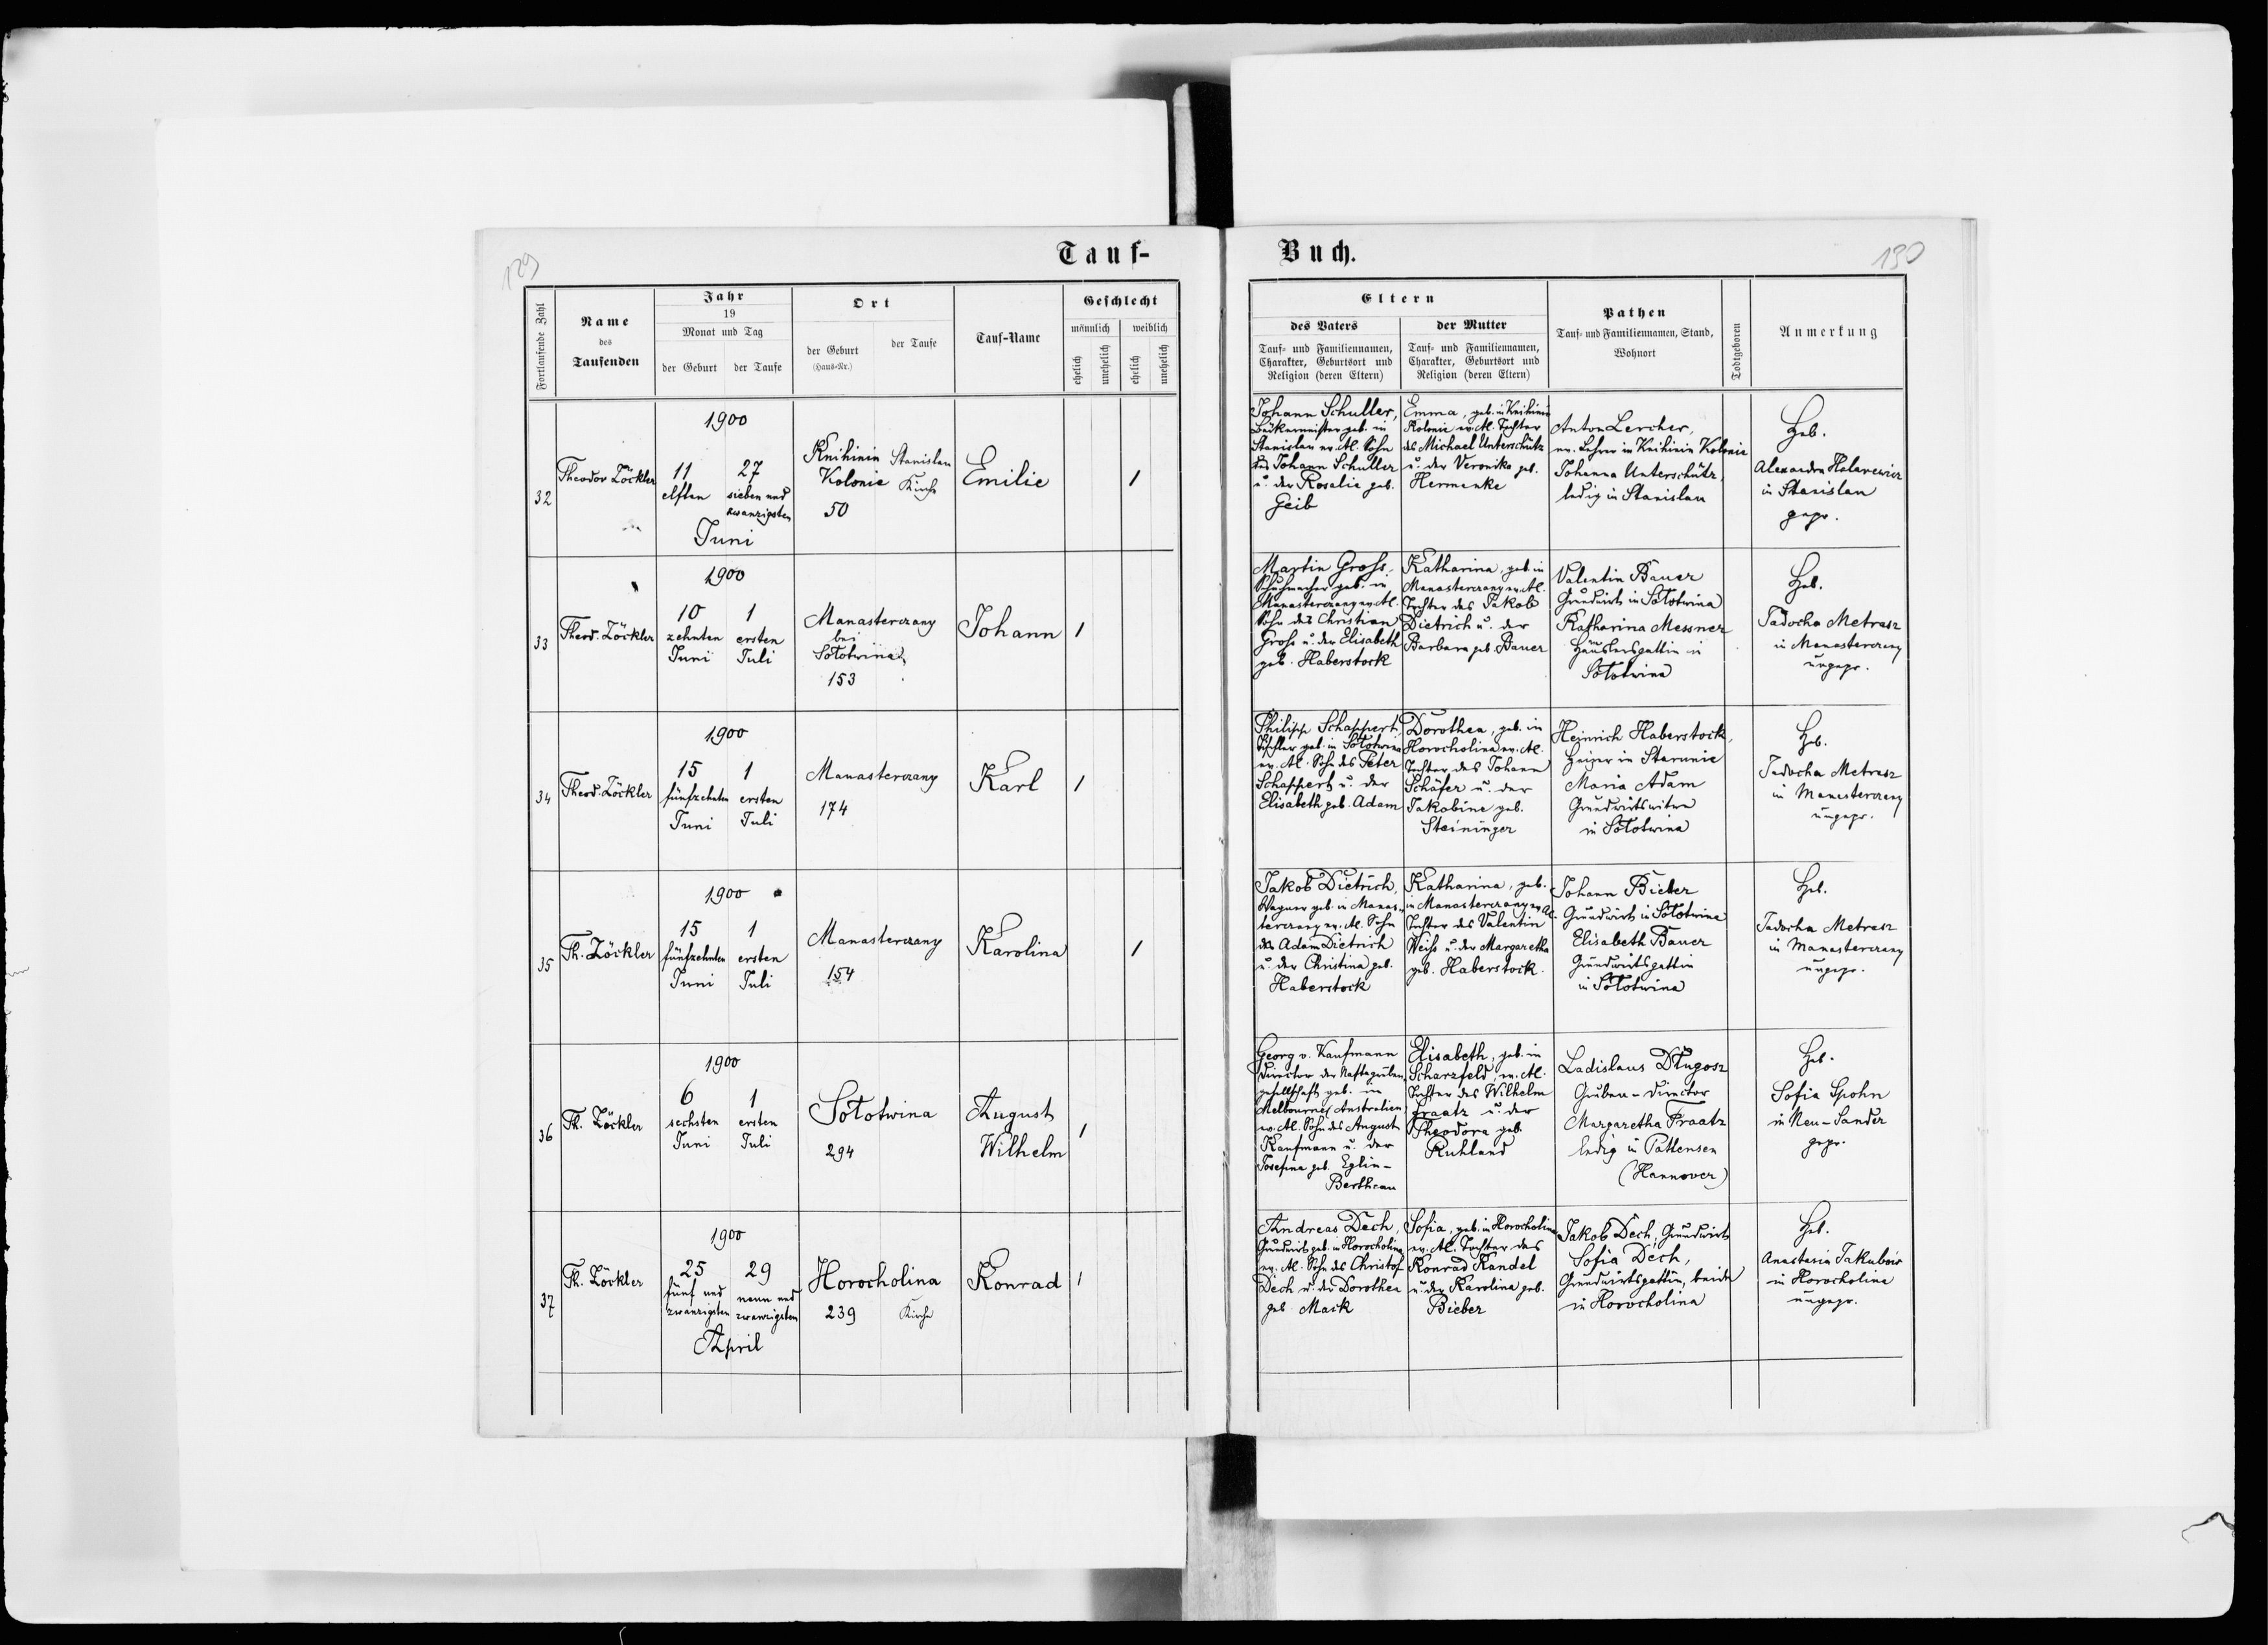 129
Tauf-
Buch.
130
Fortlaufende Zahl
Name
des
Taufenden
Jahr
19
Monat und Tag
der Geburt
der Taufe
Ort
der Geburt
(Haus-Nr.)
der Taufe
Tauf-Name
Geschlecht
männlich
weiblich
ehelich
unehelich
ehelich
unehelich
Eltern
des Vaters
Tauf- und Familiennamen,
Charakter, Geburtsort und
Religion (deren Eltern)
der Mutter
Tauf- und Familiennamen,
Charakter, Geburtsort und
Religion (deren Eltern)
Pathen
Tauf- und Familiennamen, Stand,
Wohnort
Todtgeboren
Anmerkung
32
Theodor Zöckler
1900
11
elften
27
sieben und
zwanzigsten
Juni
Knihinin
Kolonie
50
Stanislau
Kirche
Emilie
1
Johann Schuller,
Bäckermeister geb. in
Stanislau ev. Al. Sohn
des Johann Schuller
u. der Rosalie geb.
Geib
Emma, geb. in Knihinin
Kolonie ev. Al. Tochter
des Michael Unterschütz
u. der Veronika geb.
Hermanke
Anton Lercher,
ev. Lehrer in Knihinin Kolonie
Johanna Unterschütz,
ledig in Stanislau
Heb.
Alexandra
in Stanislau
gepr.
33
Theod. Zöckler
1900
10
zehnten
Juni
1
ersten
Juli
Manasterczany
bei
Sołotwina
153
Johann
1
Martin Groß,
Schuhmacher geb. in
Manasterczany ev. Al.
Sohn des Christian
Groß u. der Elisabeth
geb. Haberstock
Katharina, geb. in
Manasterczany ev. Al.
Tochter des Jakob
Dietrich u. der
Barbara geb. Bauer
Valentin Bauer
Grundwirt in Sołotwina
Katharina Messner
Häuslersgattin in
Sołotwina
Heb.
Jadocha Metrasz
in Manasterczany
ungepr.
34
Theod. Zöckler
1900
15
fünfzehnten
Juni
1
ersten
Juli
Manasterczany
174
Karl
1
Philipp Schappert,
Tischler geb. in Sołotwina
ev. Al. Sohn des Peter
Schappert u. der
Elisabeth geb. Adam
Dorothea, geb. in
Horocholina ev. Al.
Tochter des Johann
Schäfer u. der
Jakobine geb.
Steininger
Heinrich Haberstock,
Heizer in Starunie
Maria Adam
Grundwirtswitwe
in Sołotwina
Heb.
Jadocha Metrasz
in Manasterczany
ungepr.
35
Th. Zöckler
1900
15
fünfzehnten
Juni
1
ersten
Juli
Manasterczany
154
Karolina
1
Jakob Dietrich,
Wagner geb. in Manas-
terczany ev. Al. Sohn
des Adam Dietrich
u. der Christina geb.
Haberstock
Katharina, geb.
in Manasterczany ev. Al.
Tochter des Valentin
Weiß u. der Margaretha
geb. Haberstock.
Johann Bieber
Grundwirt in Sołotwina
Elisabeth Bauer
Grundwirtsgattin
in Sołotwina
Heb.
Jadocha Metrasz
in Manasterczany
ungepr.
36
Th. Zöckler
1900
6
sechsten
Juni
1
ersten
Juli
Sołotwina
294
August
Wilhelm
1
Georg v. Kaufmann
Director der Naftagruben
gesellschaft geb. in
Melbourne, Australien
ev. Al. Sohn des August
Kaufmann u. der
Josefina geb. Eglin-
Bertheau
Elisabeth, geb. in
Scharzfeld, ev. Al.
Tochter des Wilhelm
Fraatz u. der
Theodora geb.
Ruhland
Ladislaus Długosz
Gruben-Director
Margaretha Fraatz
ledig in Pattensen
(Hannover)
Heb.
Sofia Spohn
in Neu-Sandez
gepr.
37
Th. Zöckler
1900
25
fünf und
zwanzigsten
29
neun und
zwanzigsten
April
Horocholina
239
Kirche
Konrad
1
Andreas Dech,
Grundwirt geb. in Horocholina
ev. Al. Sohn des Christof
Dech u. der Dorothea
geb. Mack
Sofia, geb. in Horocholina
ev. Al. Tochter des
Konrad Kandel
u. der Karolina geb.
Bieber
Jakob Dech, Grundwirt
Sofia Dech,
Grundwirtsgattin, beide
in Horocholina
Heb.
Anastasia Jakubow
in Horocholina
ungepr.